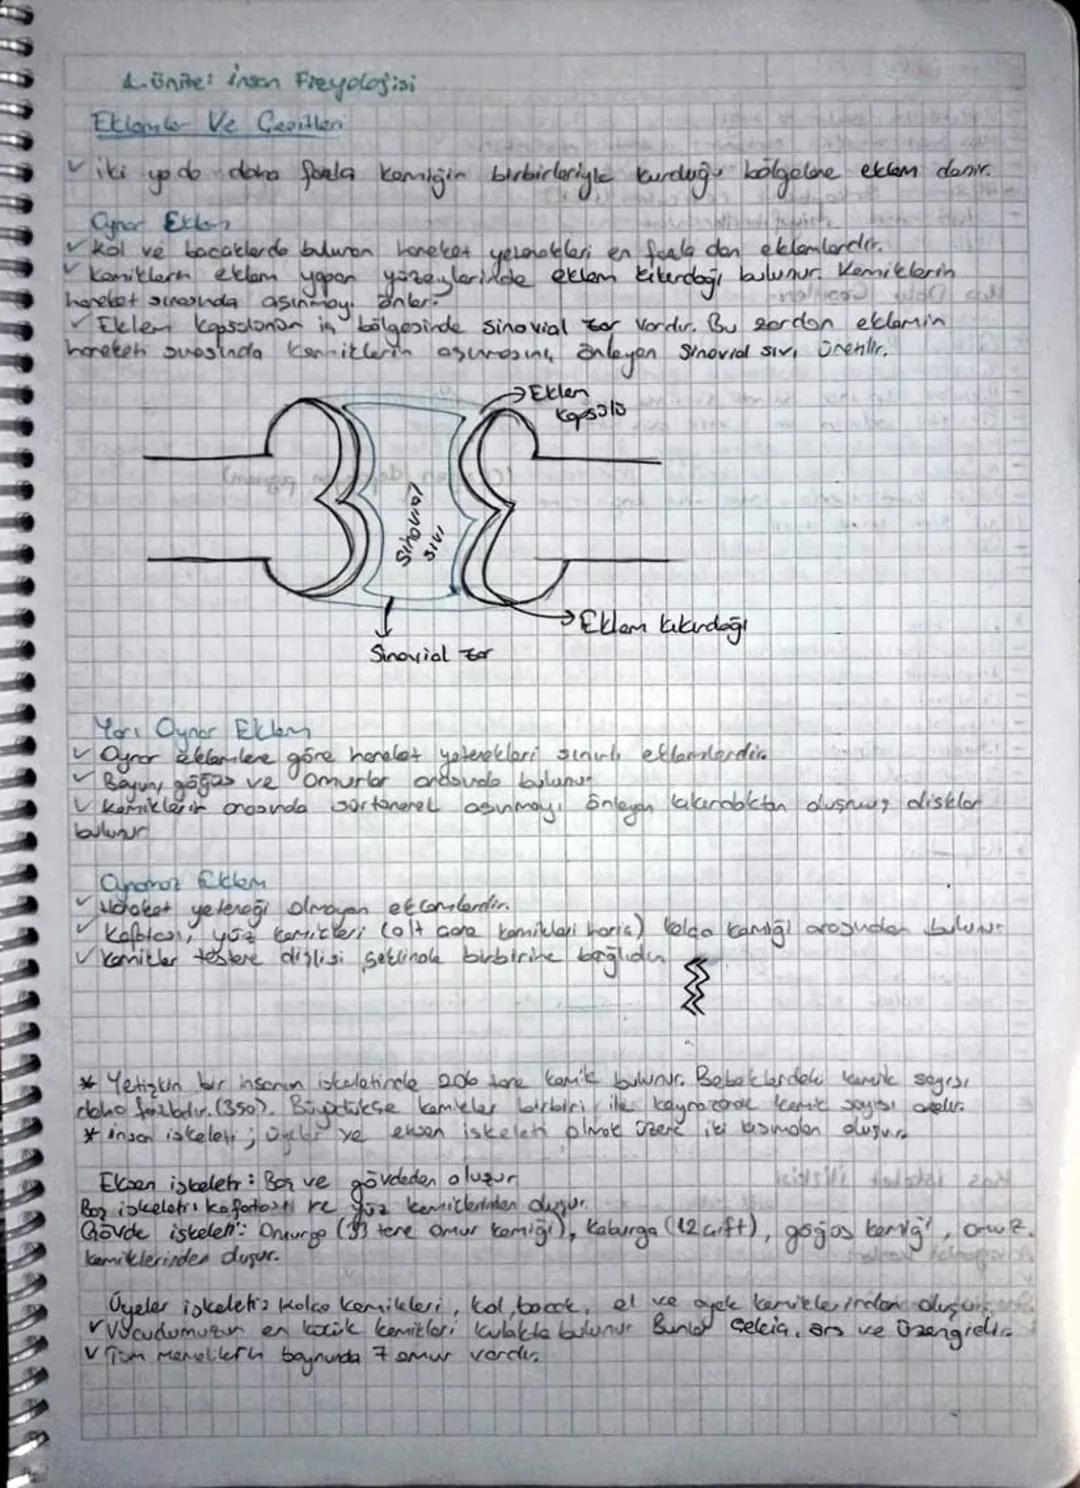 1. Ünite: İnsan Fizyolojisi
Eklemler Ve Çeşitleri
✓ iki ya da daha fazla kemiğin birbirleriyle kurduğu bölgelere eklem denir.
Oynar Eklem
✓ Kol ve bacaklarda bulunan hareket yetenekleri en fazla olan eklemlerdir.
✓ Kemiklerin eklem yapan yüzeylerinde eklem kıkırdağı bulunur. Kemiklerin
hareket sırasında aşınmayı önler.
✓ Eklem kapsülünün iç bölgesinde sinovial zar vardır. Bu zardan eklemin
hareketi sırasında kemiklerin aşınmasını önleyen sinovial sıvı üretilir.
Eklem
kapsülü
Sinovial
sıvı
Eklem kıkırdağı
Sinovial zar
Yarı Oynar Eklem
✓ Oynar eklemlere göre hareket yetenekleri sınırlı eklemlerdir.
✓ Boyun, göğüs ve omurlar arasında bulunur
✓ Kemiklerin arasında sürtünerek aşınmayı önleyen kıkırdaktan oluşmuş diskler
bulunur
Oynamaz Eklem
✓ Hareket yeteneği olmayan eklemlerdir.
✓ Kafatası, yüz kemikleri (alt çene kemikleri hariç) kalça kemiği arasından bulunur
✓ Kemikler testere dişlisi şeklinde birbirine bağlıdır
* Yetişkin bir insanın iskeletinde 206 tane kemik bulunur. Bebeklerdeki kemik sayısı
daha fazladır. (350). Büyüdükçe kemikler birbiri ile kaynaşarak kemik sayısı azalır.
* insan iskeleti; üyeler ve eksen iskeleti olmak üzere iki kısımdan oluşur
Eksen iskeleti: Baş ve gövdeden oluşur
Baş iskeleti: kafatası ve yüz kemiklerinden oluşur.
Gövde iskeleti: Omurga (33 tane omur kemiği), kaburga (12 çift), göğüs kemiği, omuz
kemiklerinden oluşur.
Üyeler iskeleti: Kalça kemikleri, kol, bacak, el ve ayak kemiklerinden oluşur.
✓ Vücudumuzun en küçük kemikleri kulakta bulunur Bunlar çekiç, örs ve üzengidir.
✓ Tüm memelilerin boynunda 7 omur vardır.